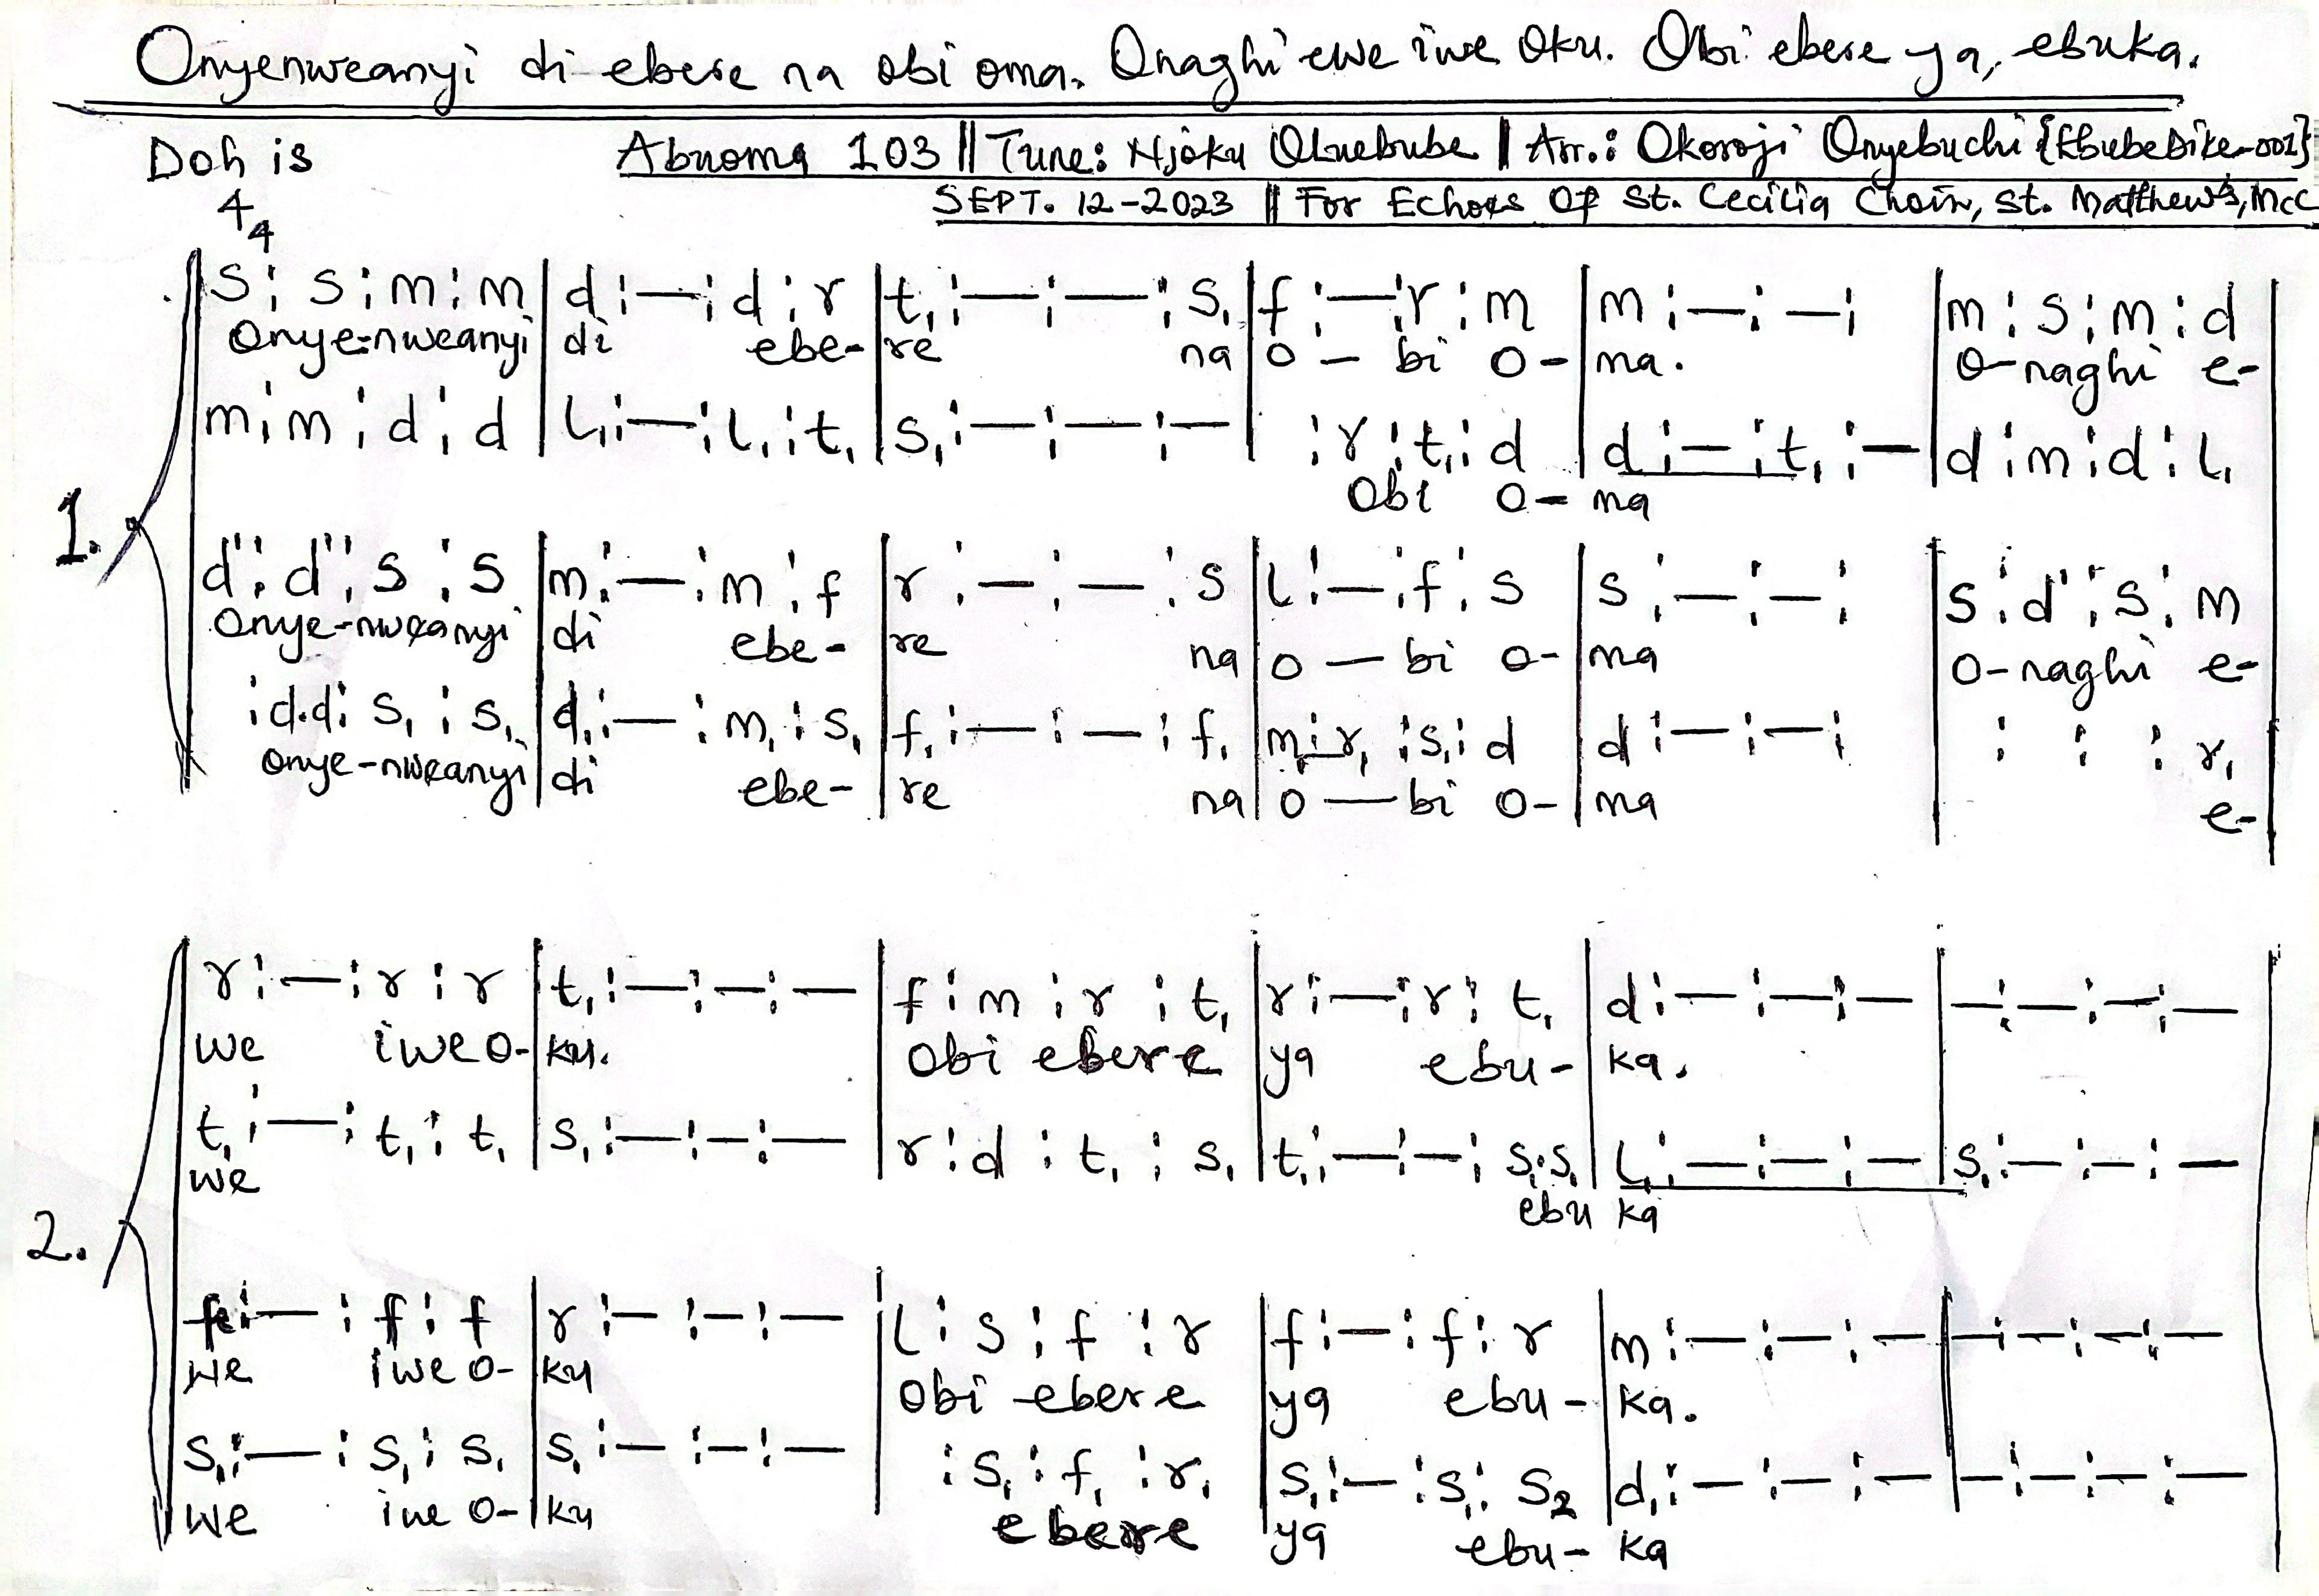 Onyenweanyi di ebere na obi oma. Onaghi ewe iwe oku. Obi ebere ya, ebuka.
Doh is Abuoma 103 || Tune: Njoku Oluebube || Arr.: Okoroji Onyebuchi {EbubeDike-001}
SEPT. 12-2023 || For Echoes Of St. Cecilia Choir, St. Matthew's, MCC
4
4
1.
s : s : m : m | d : — : d : r | t, : — : — : s, | f : — : r : m | m : — : — : | m : s : m : d
Onye-nweanyi | di ebe- | re na | o — bi o- | ma. | O-naghi e-
m : m : d : d | l, : — : l, : t, | s, : — : — : — | : r : t, : d | d : — : t, : — | d : m : d : l,
Obi o- ma
d' : d' : s : s | m : — : m : f | r : — : — : s | l : — : f : s | s : — : — : | s : d' : s : m
Onye-nweanyi | di ebe- | re na | o — bi o- | ma | O-naghi e-
: d.d : s, : s, | d, : — : m, : s, | f, : — : — : f, | m, : r, : s, : d | d : — : — : | : : : r,
onye-nweanyi | di ebe- | re na | o — bi o- | ma e-
2.
r : — : r : r | t, : — : — : — | f : m : r : t, | r : — : r : t, | d : — : — : — | — : — : — : —
we iwe o- | ku. | Obi ebere | ya ebu- | ka.
t, : — : t, : t, | s, : — : — : — | r : d : t, : s, | t, : — : — : s,.s, | l, : — : — : — | s, : — : — : —
we ebu ka
f : — : f : f | r : — : — : — | l : s : f : r | f : — : f : r | m : — : — : — | — : — : — : —
we iwe o- | ku | Obi ebere | ya ebu- | ka.
s, : — : s, : s, | s, : — : — : — | : s, : f, : r, | s, : — : s, : s₂ | d, : — : — : — | — : — : — : —
we iwe o- | ku | ebere | ya ebu- | ka